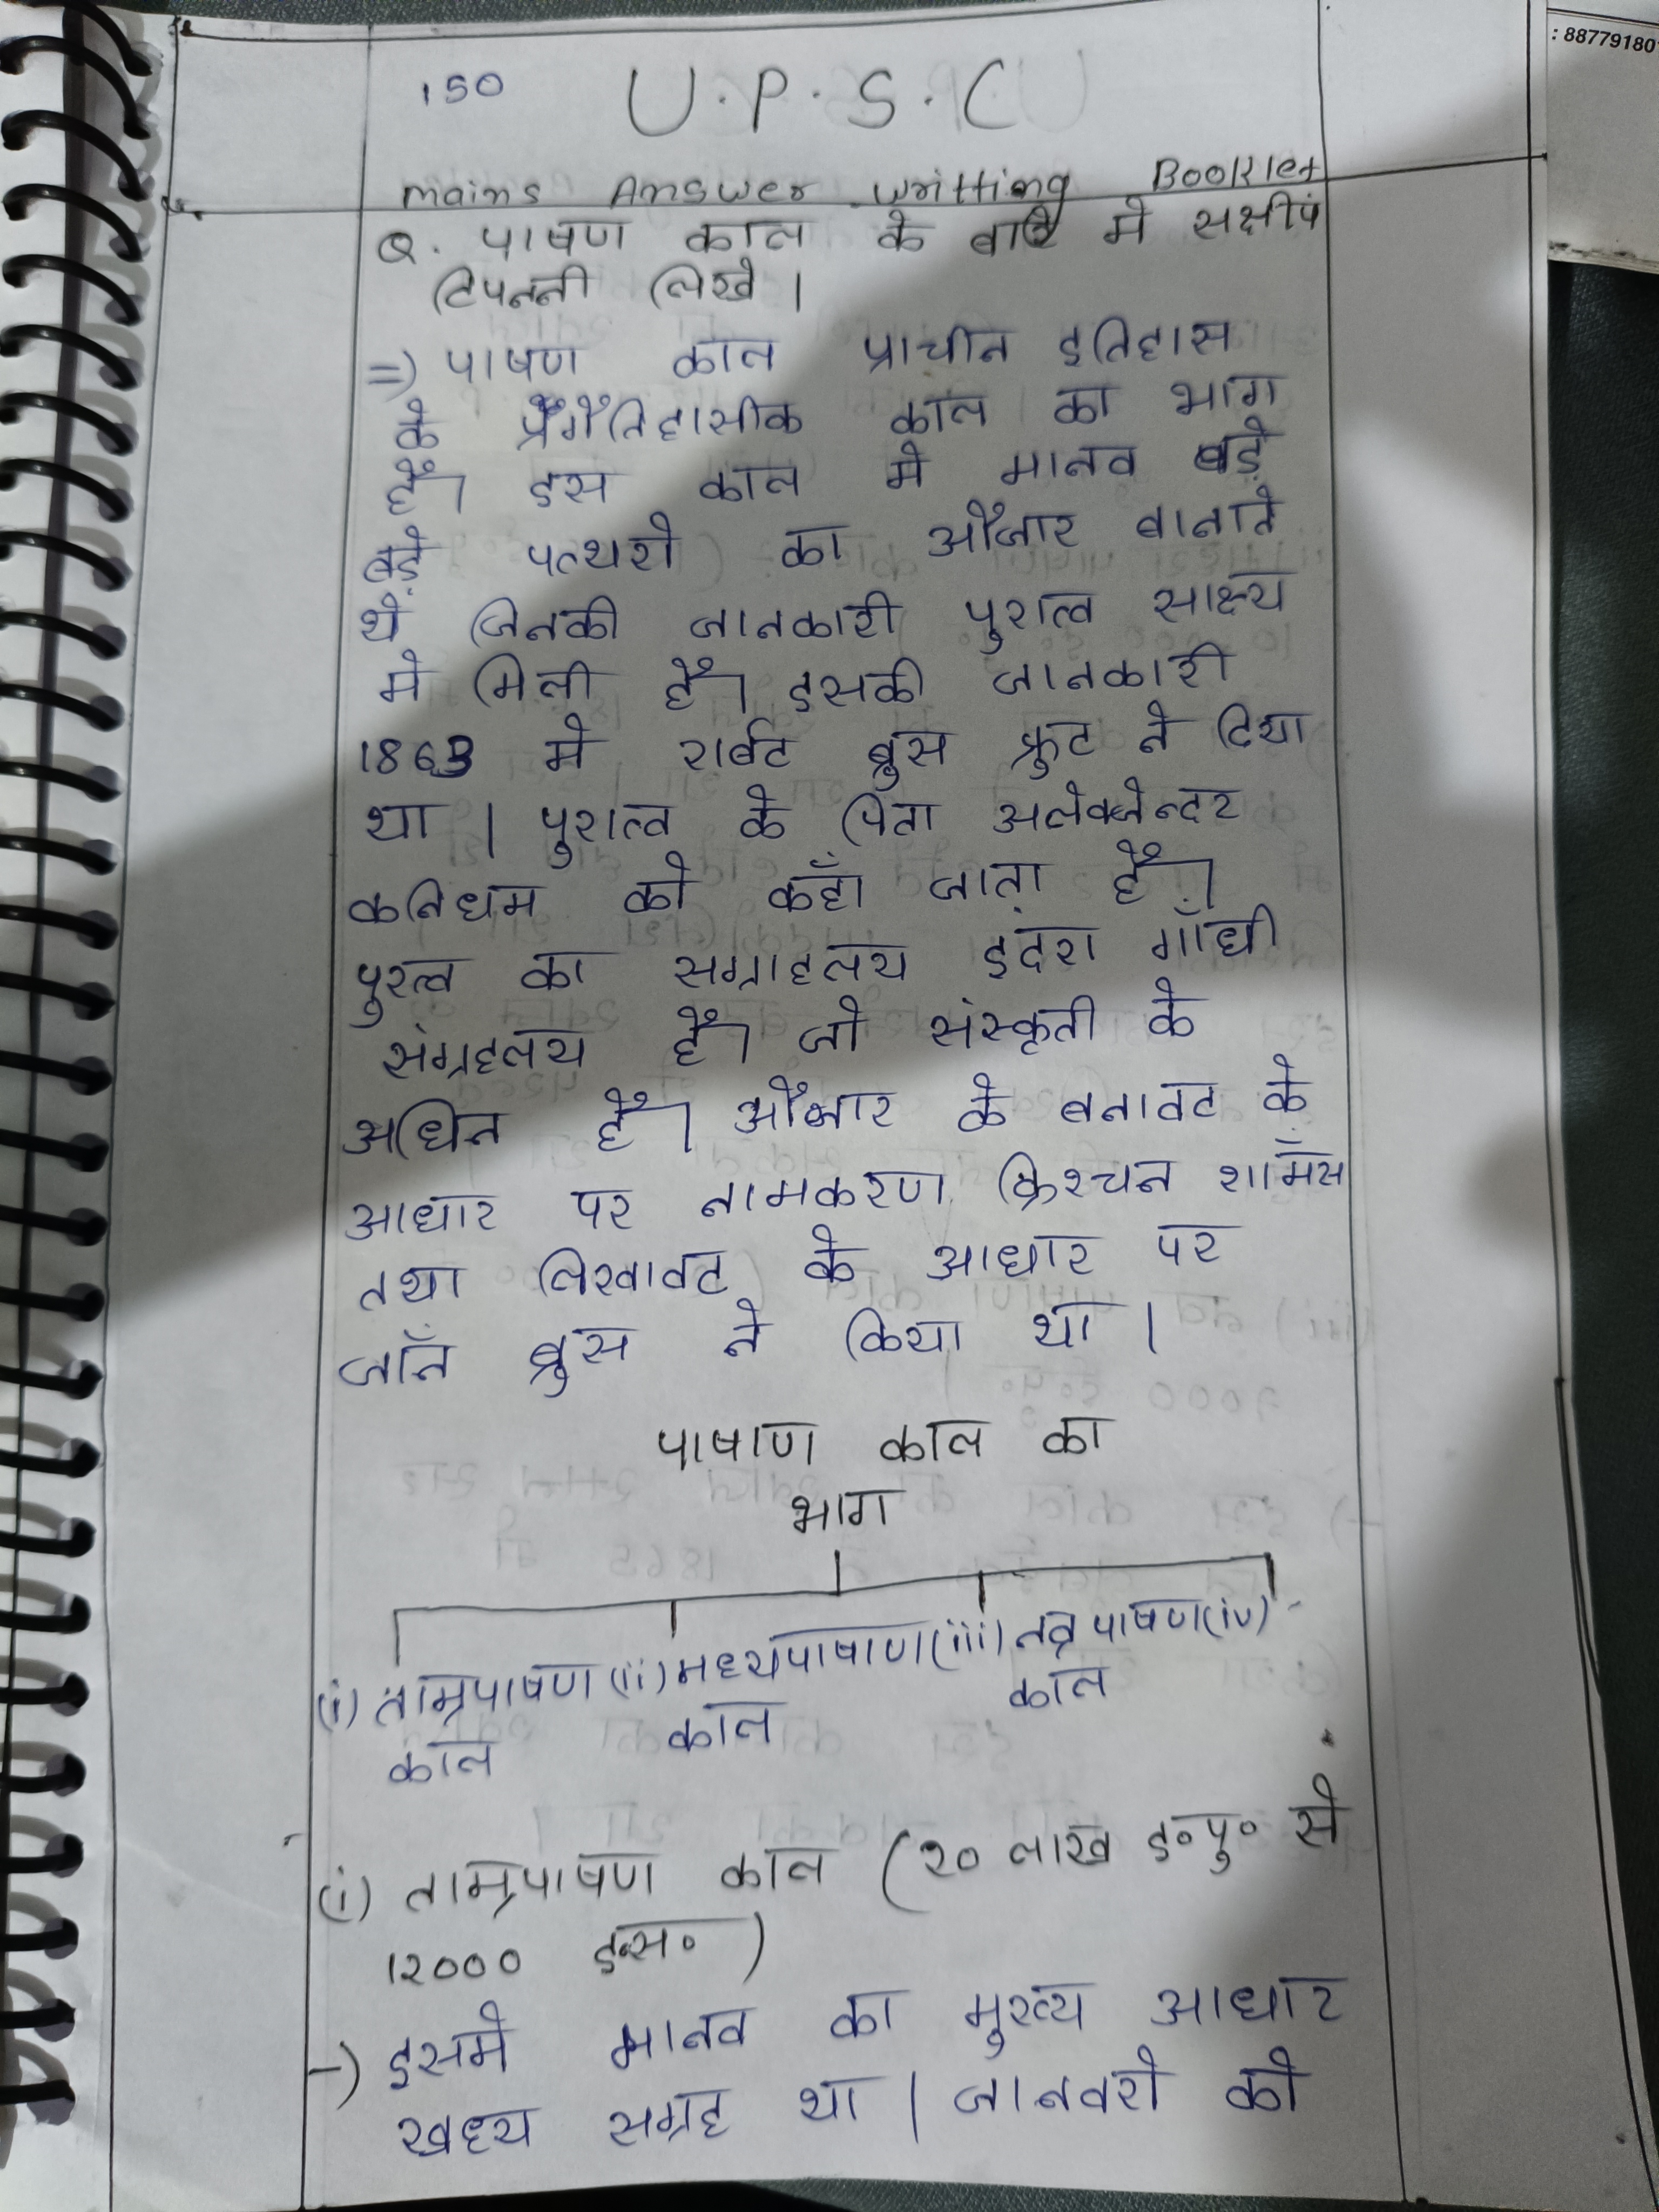 : 88779180
150 U.P.S.C
mains Answer writting Booklet
Q. पाषण काल के बारे मे सक्षीपं
टिपननी लिखे ।
=) पाषण काल प्राचीन इतिहास
के प्रँगैतिहासीक काल का भाग
हैं। इस काल मे मानव बड़े
बड़े पत्थरो का औंजार बानाते
थे जिनकी जानकारी पुरात्व साक्ष्य
मे मिली हैं। इसकी जानकारी
1863 मे रार्बट ब्रुस फ्रुट ने दिया
था । पुरात्व के पिता अलेक्जेन्दर
कनिधम को कहाँ जाता हैं।
पुरत्व का सग्राहलय इदंरा गाँधी
संग्रहलय हैं। जो संस्कृती के
अधिन हैं। औंजार के बनावट के
आधार पर नामकरण क्रिश्चन शाँमस
तथा लिखावट के आधार पर
जाँन ब्रुस ने किया था ।
पाषाण काल का
भाग
(i) ताम्रपाषण (ii) मध्यपाषाण (iii) नव पाषण (iv)
काल काल काल
(i) ताम्रपाषण काल (२० लाख इ॰पु॰ से
1२००० इ॰स॰ )
-) इसमे मानव का मुख्य आधार
खध्य सग्रह था । जानवरो को